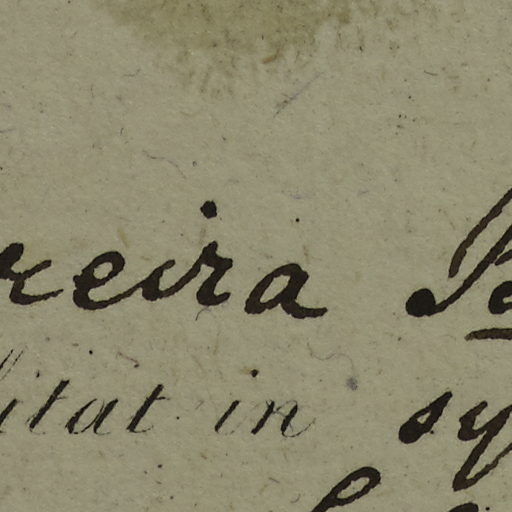 reira Pe
litat in sy